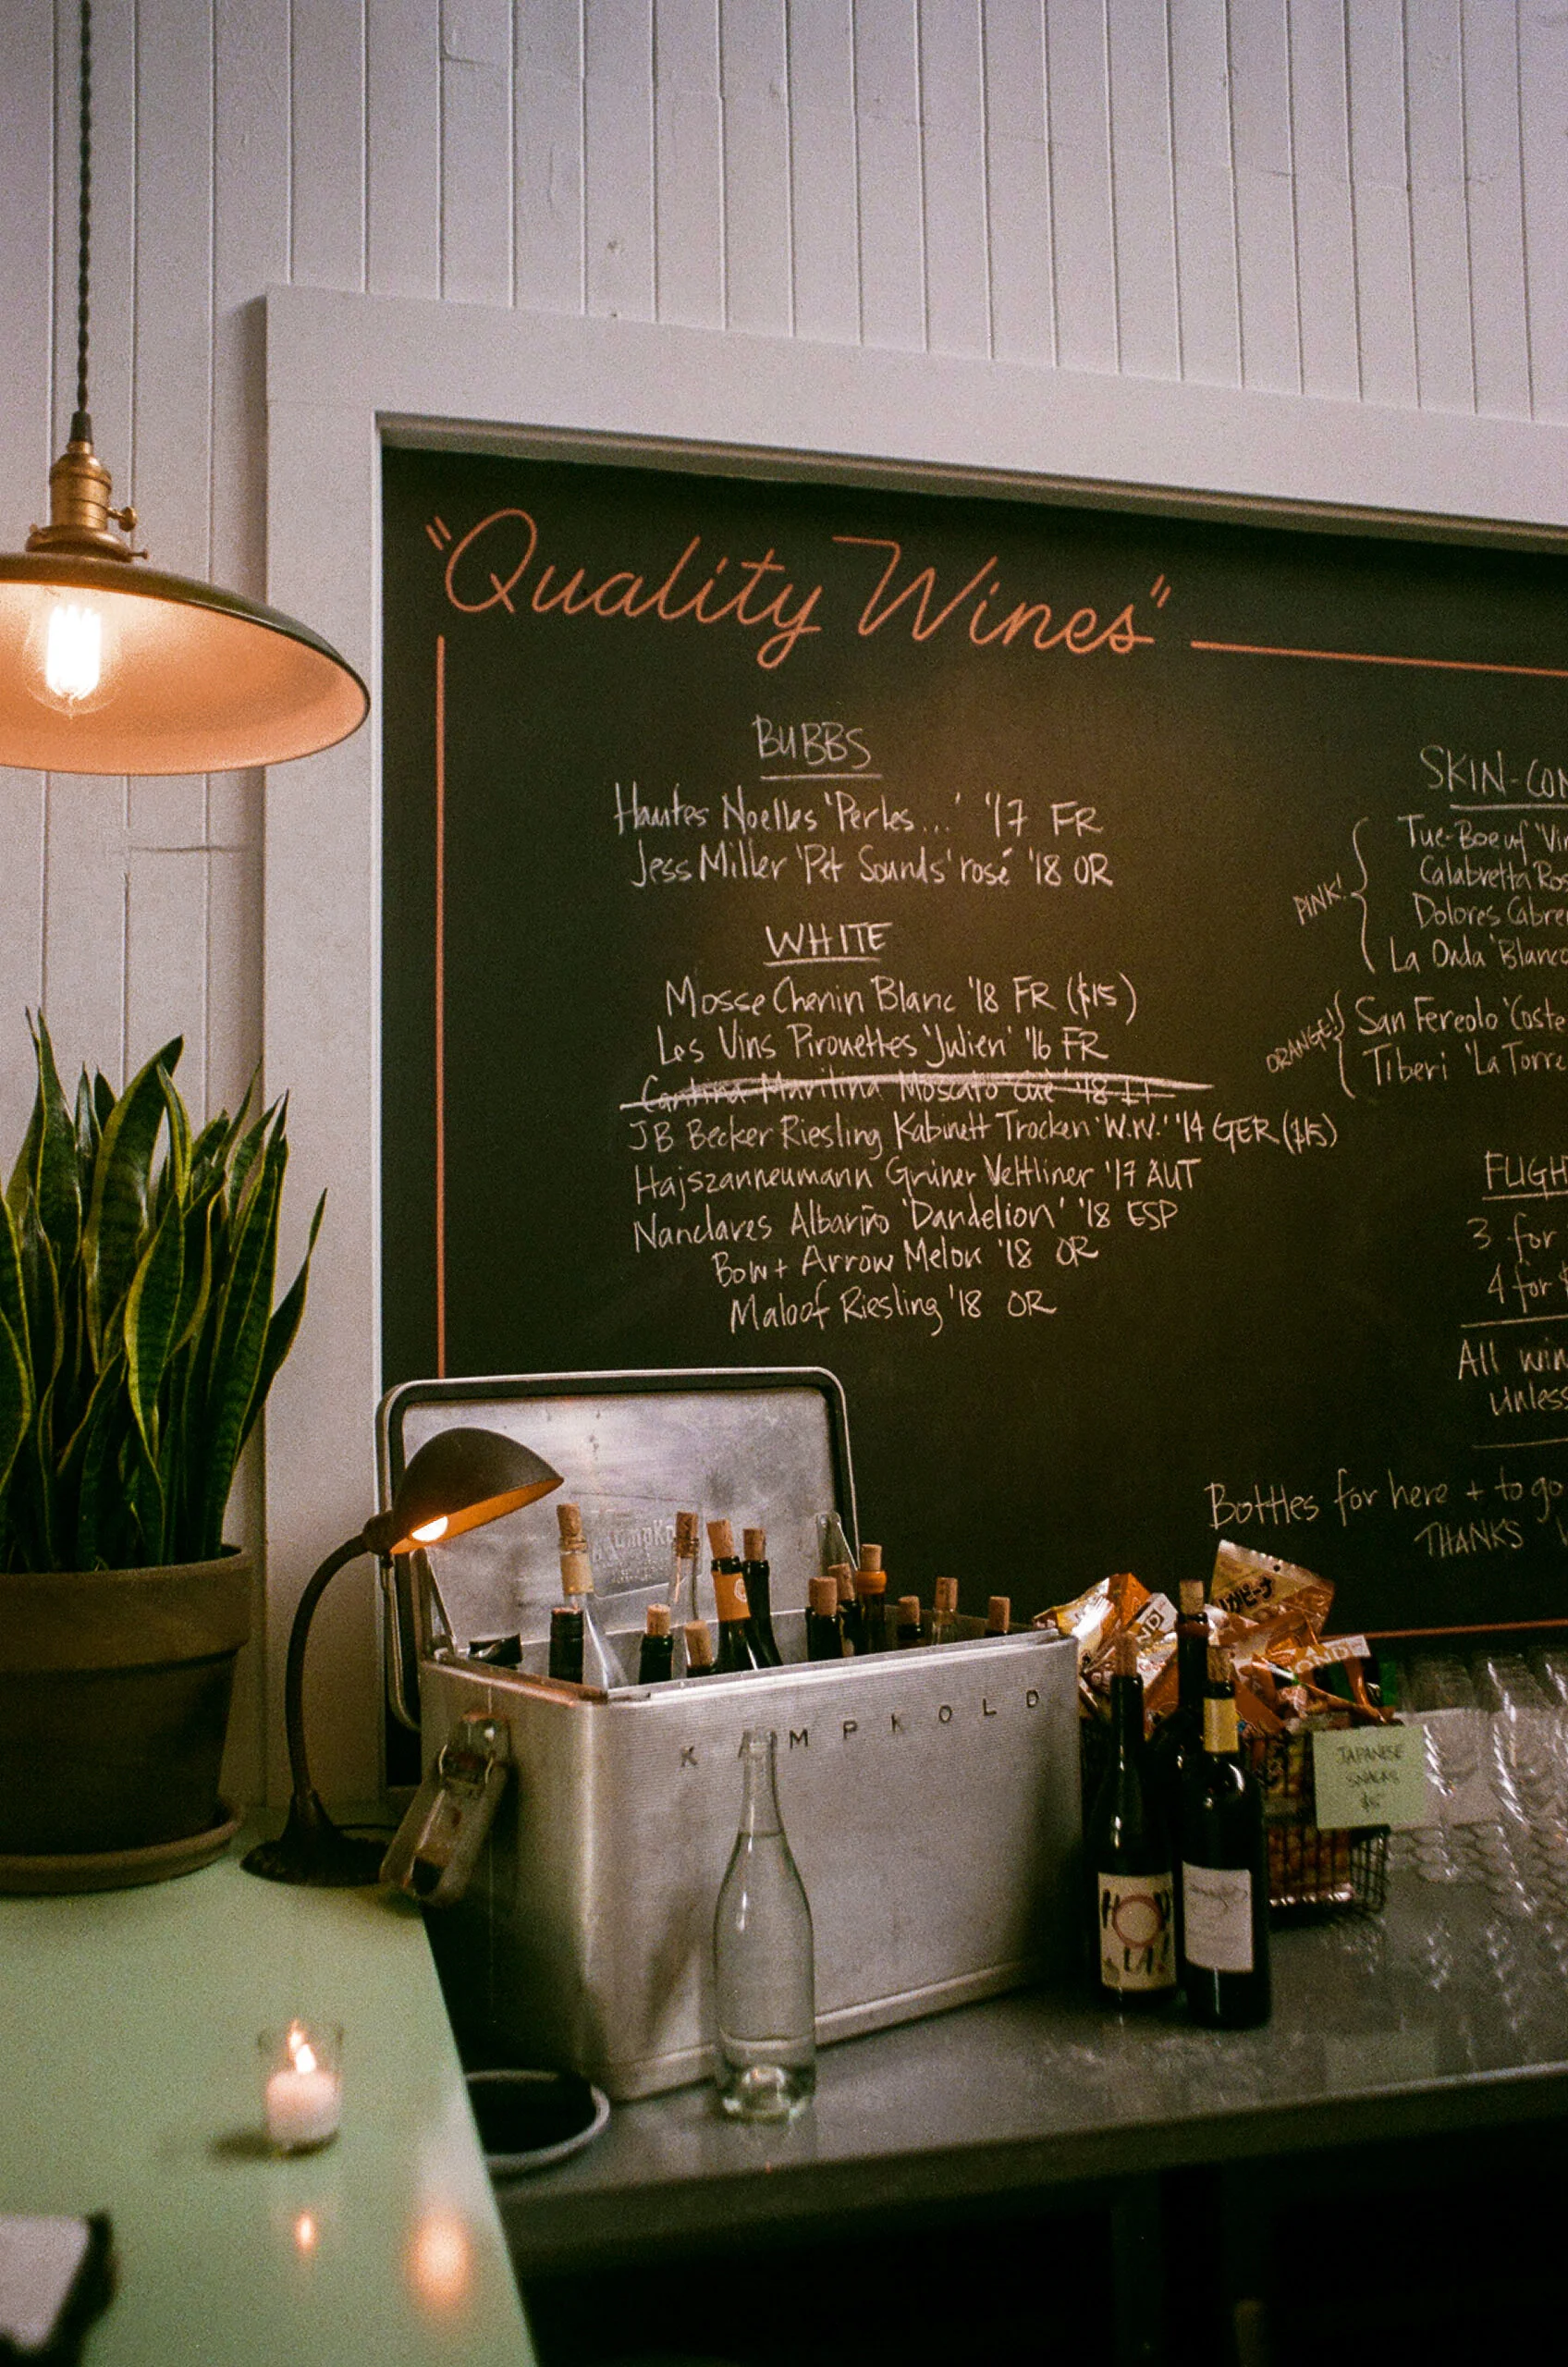 "Quality Wines"
BUBBS
Hautes Noelles 'Perles...' '17 FR
Jess Miller 'Pet Sounds' rosé '18 OR
WHITE
Mosse Chenin Blanc '18 FR ($15)
Les Vins Pirouettes 'Julien' '16 FR
Cantina Marilina Moscato Cué '18 IT
JB Becker Riesling Kabinett Trocken 'W.W.' '14 GER ($15)
Hajszanneumann Grüner Veltliner '17 AUT
Nanclares Albariño 'Dandelion' '18 ESP
Bow + Arrow Melon '18 OR
Maloof Riesling '18 OR
SKIN-CON
PINK!
Tue-Boeuf 'Vin
Calabretta Ros
Dolores Cabre
La Onda 'Blanco
ORANGE!
San Fereolo 'Coste
Tiberi 'La Torre
FLIGH
3 for
4 for $
All win
unless
Bottles for here + to go
THANKS
KAMPKOLD
JAPANESE
SNACKS
$5